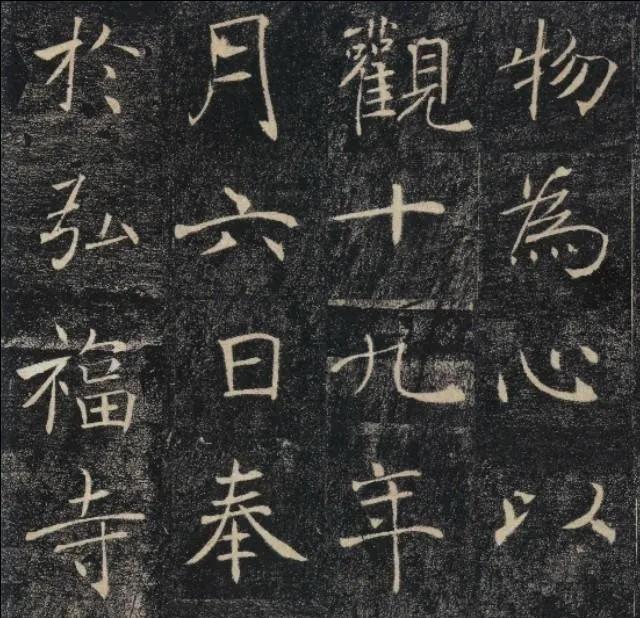 物為心以
觀十九年
月六日奉
於弘福寺